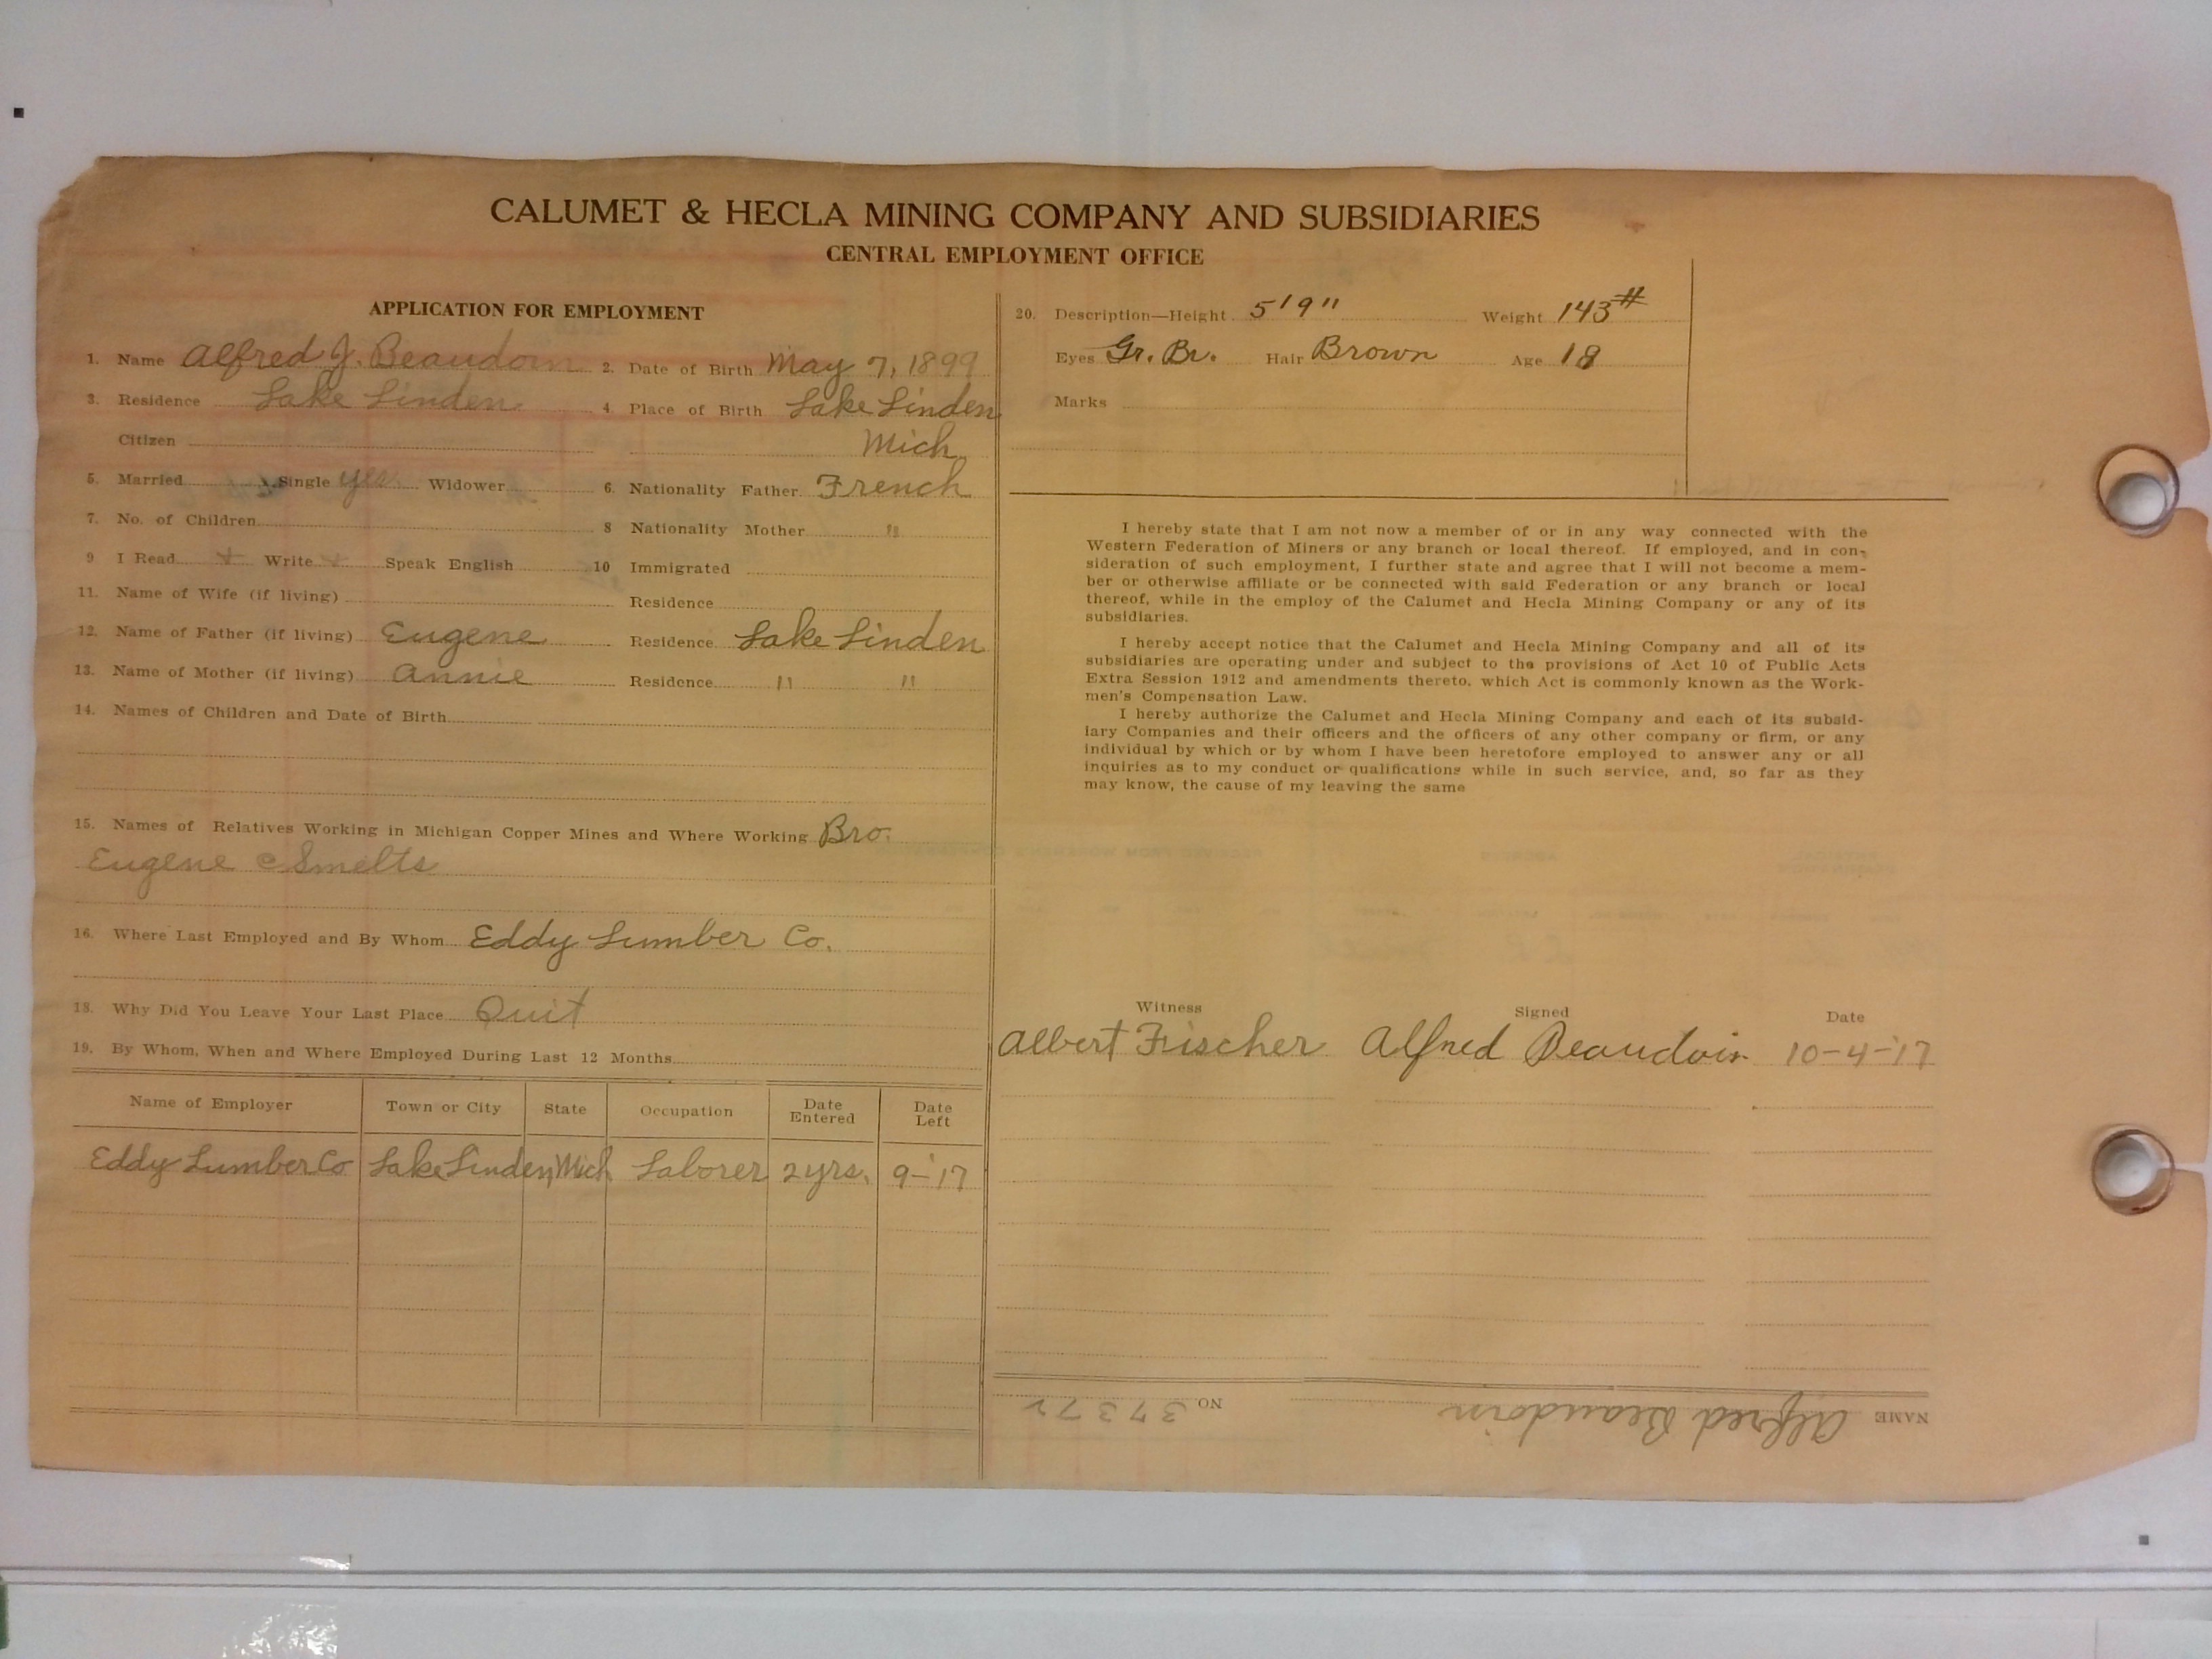 CALUMET & HECLA MINING COMPANY AND SUBSIDIARIES
CENTRAL EMPLOYMENT OFFICE
APPLICATION FOR EMPLOYMENT
1. Name Alfred J. Beaudoin 2. Date of Birth May 7, 1899
3. Residence Lake Linden 4. Place of Birth Lake Linden
Citizen Mich
5. Married Single yes Widower 6. Nationality Father French
7. No. of Children 8 Nationality Mother "
9 I Read + Write + Speak English 10 Immigrated
11. Name of Wife (if living) Residence
12. Name of Father (if living) Eugene Residence Lake Linden
13. Name of Mother (if living) Annie Residence " "
14. Names of Children and Date of Birth
15. Names of Relatives Working in Michigan Copper Mines and Where Working Bro.
Eugene @ Smelts
16. Where Last Employed and By Whom Eddy Lumber Co.
18. Why Did You Leave Your Last Place Quit
19. By Whom, When and Where Employed During Last 12 Months
Name of Employer Town or City State Occupation Date Entered Date Left
Eddy Lumber Co Lake Linden Mich Laborer 2 yrs. 9-'17
20. Description—Height 5'9" Weight 143#
Eyes Gr. Br. Hair Brown Age 18
Marks
I hereby state that I am not now a member of or in any way connected with the
Western Federation of Miners or any branch or local thereof. If employed, and in con-
sideration of such employment, I further state and agree that I will not become a mem-
ber or otherwise affiliate or be connected with said Federation or any branch or local
thereof, while in the employ of the Calumet and Hecla Mining Company or any of its
subsidiaries.
I hereby accept notice that the Calumet and Hecla Mining Company and all of its
subsidiaries are operating under and subject to the provisions of Act 10 of Public Acts
Extra Session 1912 and amendments thereto, which Act is commonly known as the Work-
men's Compensation Law.
I hereby authorize the Calumet and Hecla Mining Company and each of its subsid-
iary Companies and their officers and the officers of any other company or firm, or any
individual by which or by whom I have been heretofore employed to answer any or all
inquiries as to my conduct or qualifications while in such service, and, so far as they
may know, the cause of my leaving the same
Witness Signed Date
Albert Fischer Alfred Beaudoin 10-4-'17
NAME Alfred Beaudoin NO. 37372